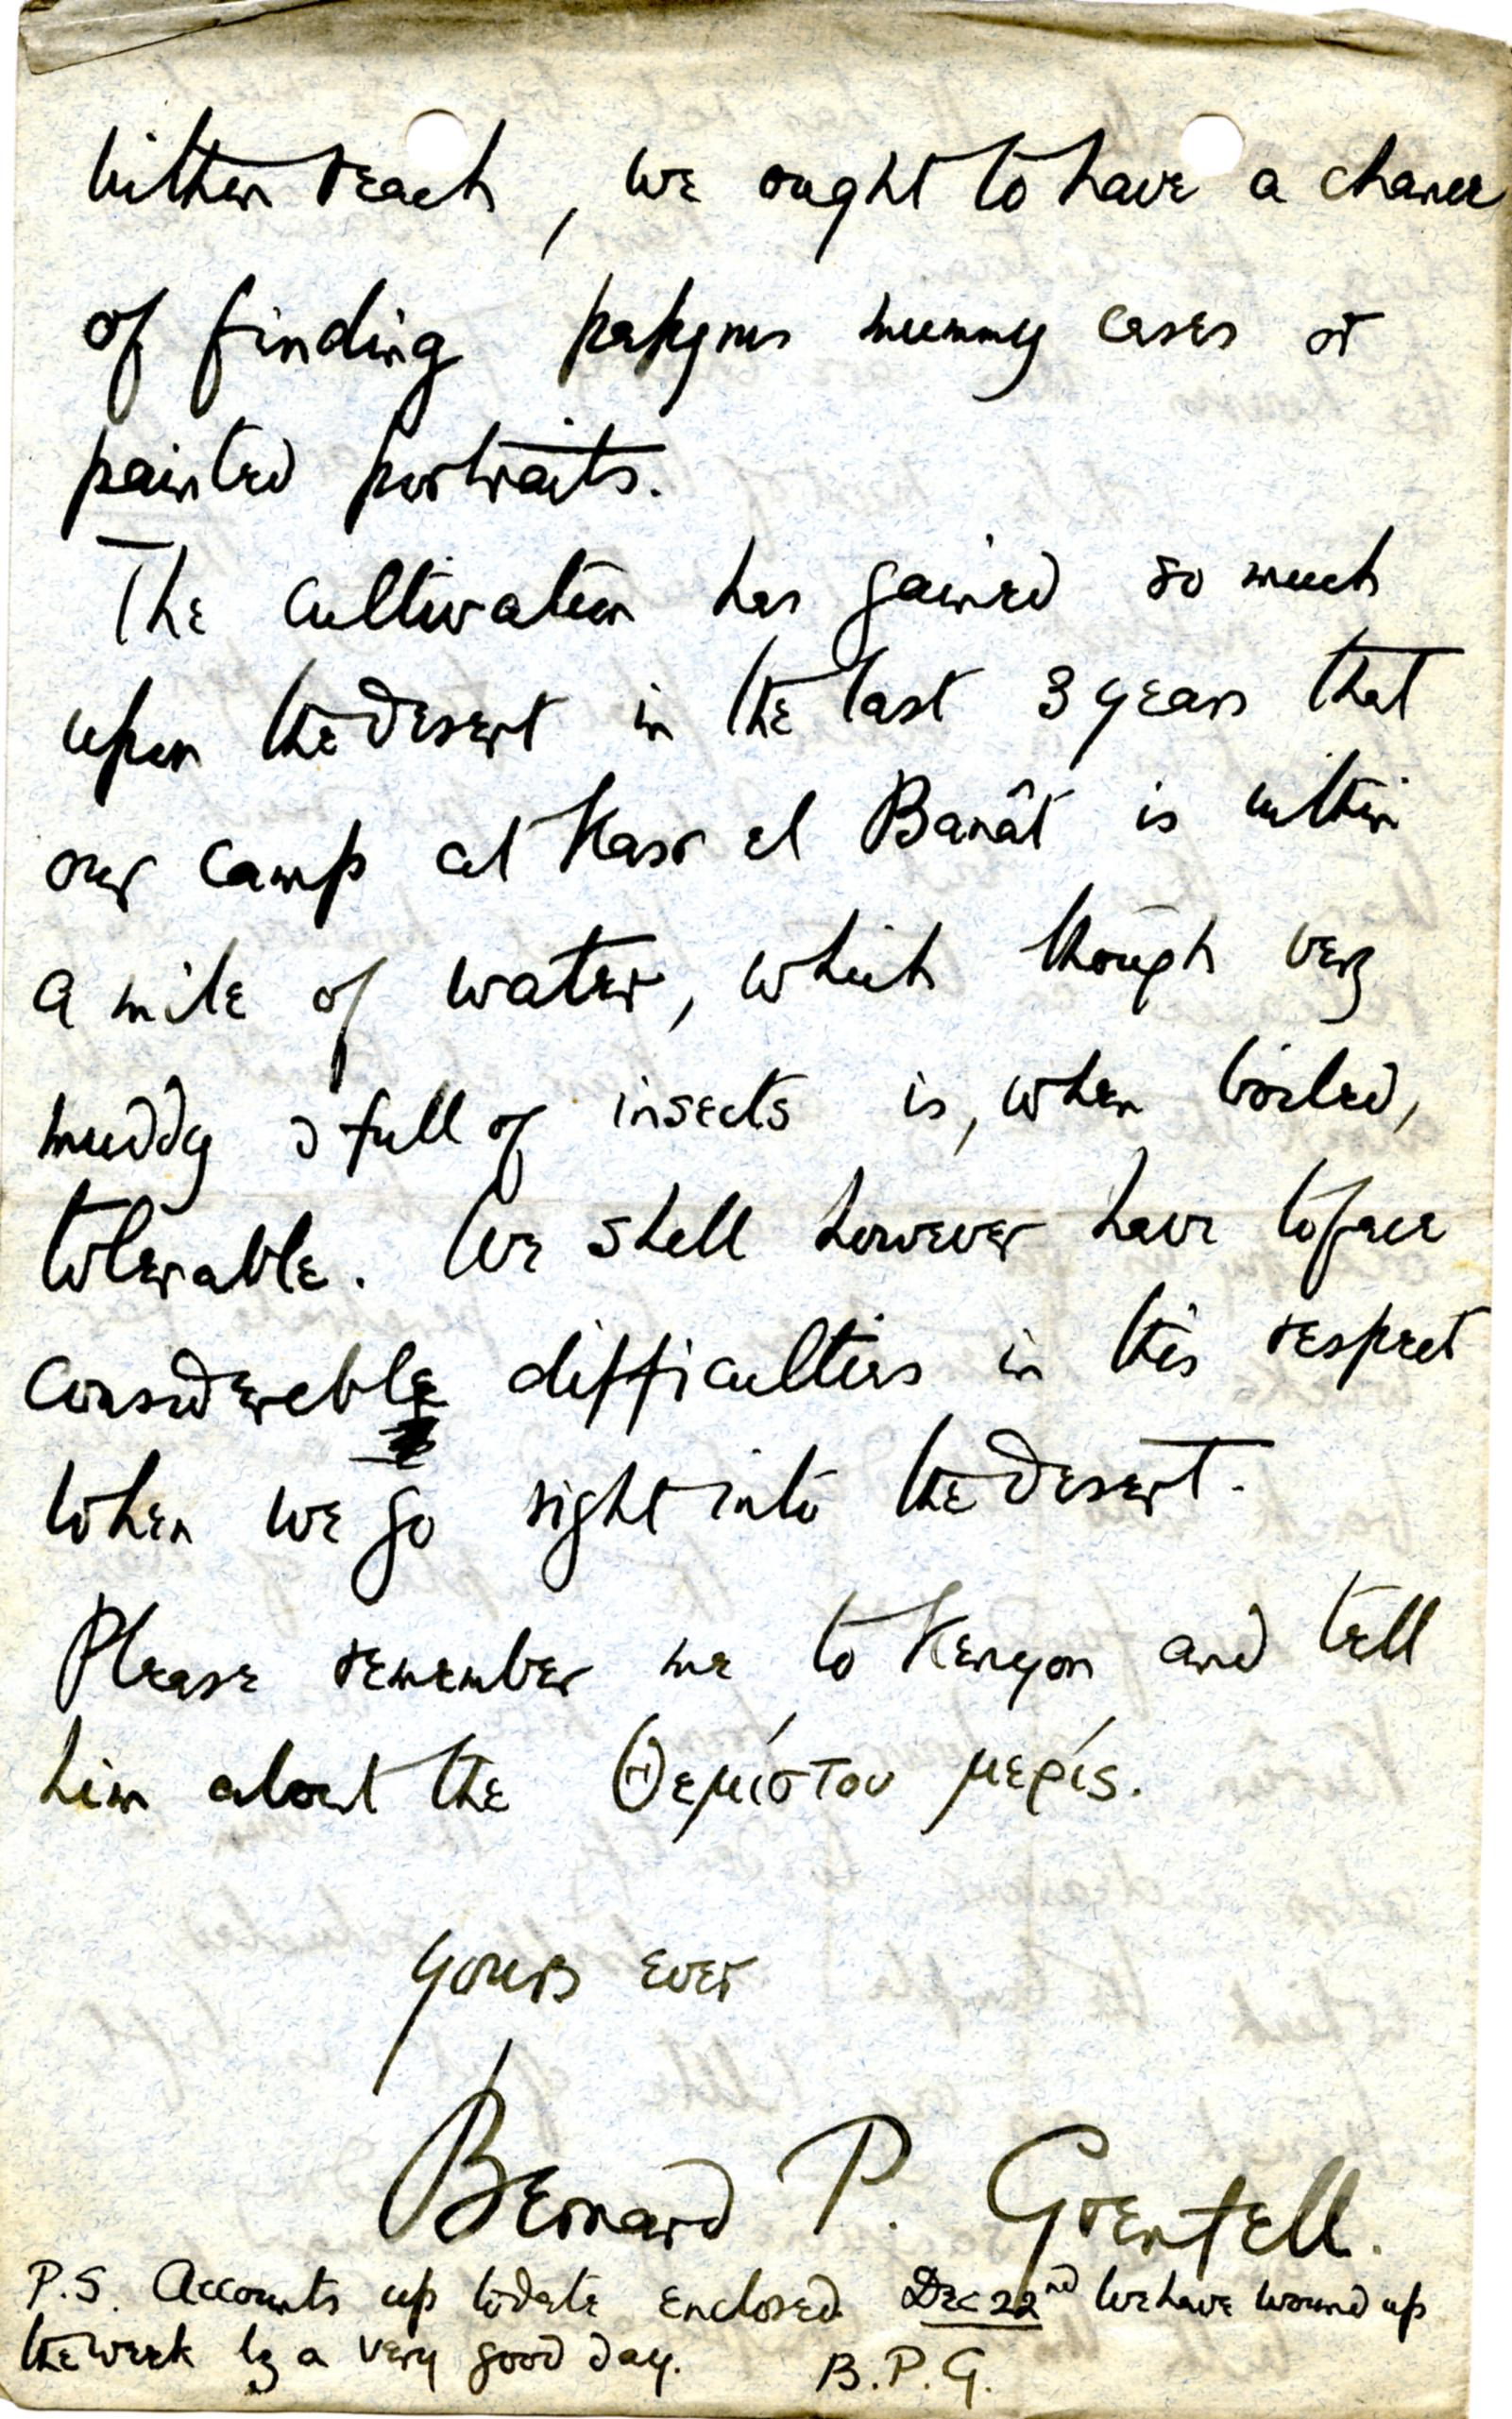 within reach, we ought to have a chance
of finding papyrus mummy cases or
painted portraits.
The cultivation has gained so much
upon the desert in the last 3 years that
our camp at Kasr el Banât is within
a mile of water, which though very
muddy & full of insects is, when boiled,
tolerable. We shall however have to face
considerable difficulties in this respect
when we go right into the desert.
Please remember me to Kenyon and tell
him about the Θεμίστου μερίς.
Yours ever
Bernard P. Grenfell.
P.S. Accounts up to date enclosed Dec 22nd We have wound up
the week by a very good day. B.P.G.